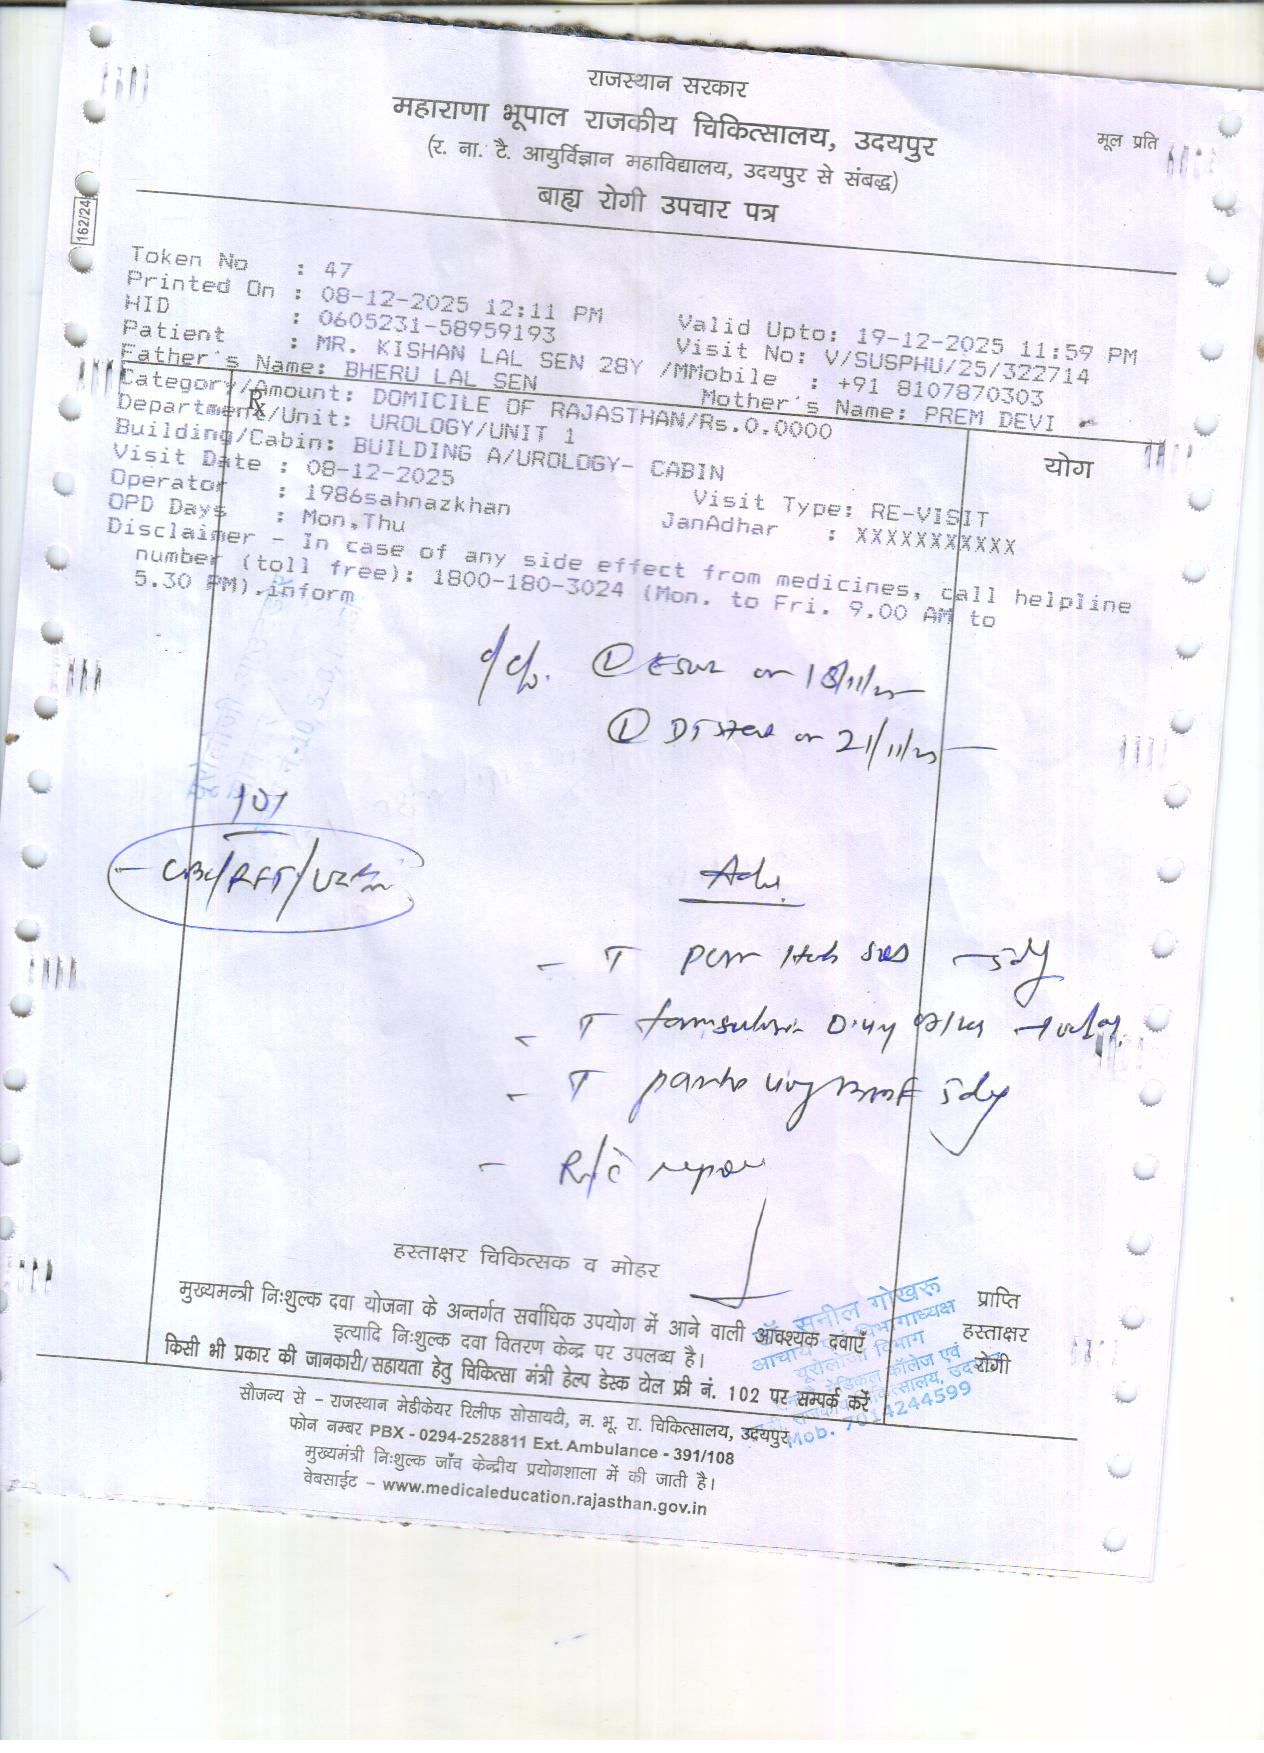 राजस्थान सरकार
महाराणा भूपाल राजकीय चिकित्सालय, उदयपुर
मूल प्रति
(र. ना. टै. आयुर्विज्ञान महाविद्यालय, उदयपुर से संबद्ध)
बाह्य रोगी उपचार पत्र
162/24
Token No : 47
Printed On : 08-12-2025 12:11 PM Valid Upto: 19-12-2025 11:59 PM
HID : 0605231-58959193 Visit No: V/SUSPHU/25/322714
Patient : MR. KISHAN LAL SEN 28Y /MMobile : +91 8107870303
Father's Name: BHERU LAL SEN Mother's Name: PREM DEVI
Category/Amount: DOMICILE OF RAJASTHAN/Rs.0.0000
Rx
Department/Unit: UROLOGY/UNIT 1
योग
Building/Cabin: BUILDING A/UROLOGY- CABIN
Visit Date : 08-12-2025 Visit Type: RE-VISIT
Operator : 1986sahnazkhan JanAdhar : XXXXXXXXXXX
OPD Days : Mon,Thu
Disclaimer - In case of any side effect from medicines, call helpline
number (toll free): 1800-180-3024 (Mon. to Fri. 9.00 AM to
5.30 PM).inform
on 18/11/25
on 21/11/25
CBC/RFT/
Adv.
- T PCM 1tab sos - 5dy
- T tamsulosin 0.4mg
- T panto 40mg BMF 5dy
- R/c report
हस्ताक्षर चिकित्सक व मोहर
मुख्यमन्त्री निःशुल्क दवा योजना के अन्तर्गत सर्वाधिक उपयोग में आने वाली आवश्यक दवाएँ
इत्यादि निःशुल्क दवा वितरण केन्द्र पर उपलब्ध है।
किसी भी प्रकार की जानकारी/सहायता हेतु चिकित्सा मंत्री हेल्प डेस्क टोल फ्री नं. 102 पर सम्पर्क करें
प्राप्ति
हस्ताक्षर
रोगी
डॉ. सुनील गोखरू
आचार्य एवं विभागाध्यक्ष
यूरोलॉजी विभाग
मेडिकल कॉलेज एवं
Mob. 7014244599
सौजन्य से - राजस्थान मेडीकेयर रिलीफ सोसायटी, म. भू. रा. चिकित्सालय, उदयपुर
फोन नम्बर PBX - 0294-2528811 Ext. Ambulance - 391/108
मुख्यमंत्री निःशुल्क जाँच केन्द्रीय प्रयोगशाला में की जाती है।
वेबसाईट - www.medicaleducation.rajasthan.gov.in